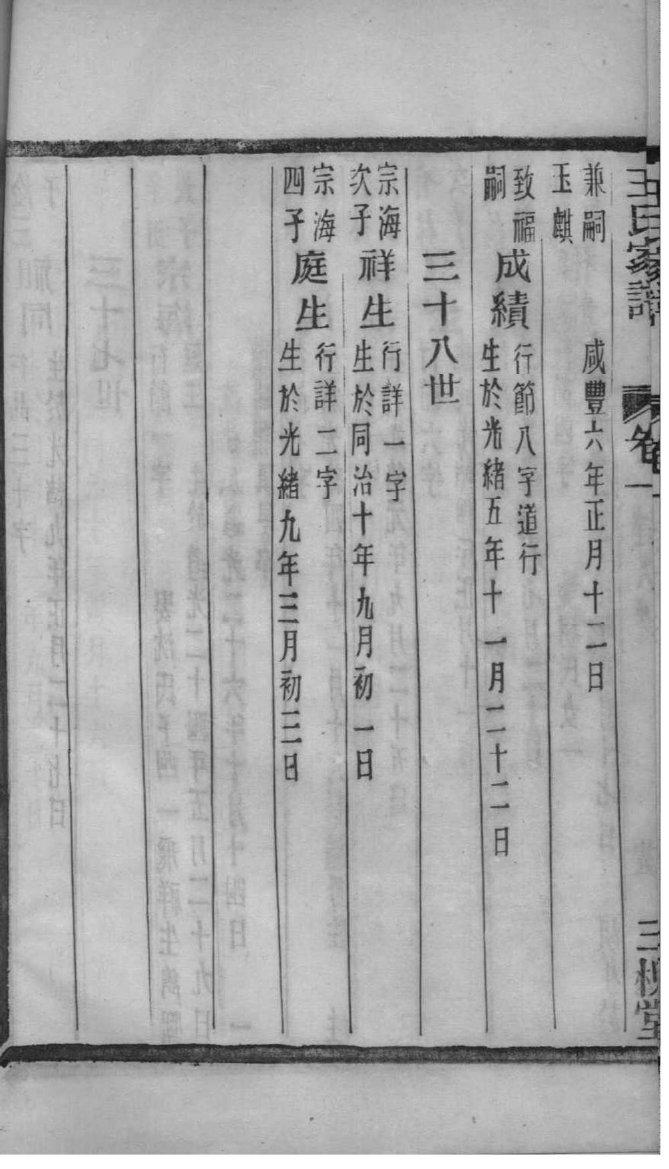 王氏家譜
卷一
三槐堂
兼嗣
玉麒
咸豐六年正月十二日
致福
嗣
成績
行節八字道行
生於光緒五年十一月二十二日
三十八世
宗海
次子
祥生
行詳一字
生於同治十年九月初一日
宗海
四子
庭生
行詳二字
生於光緒九年三月初三日